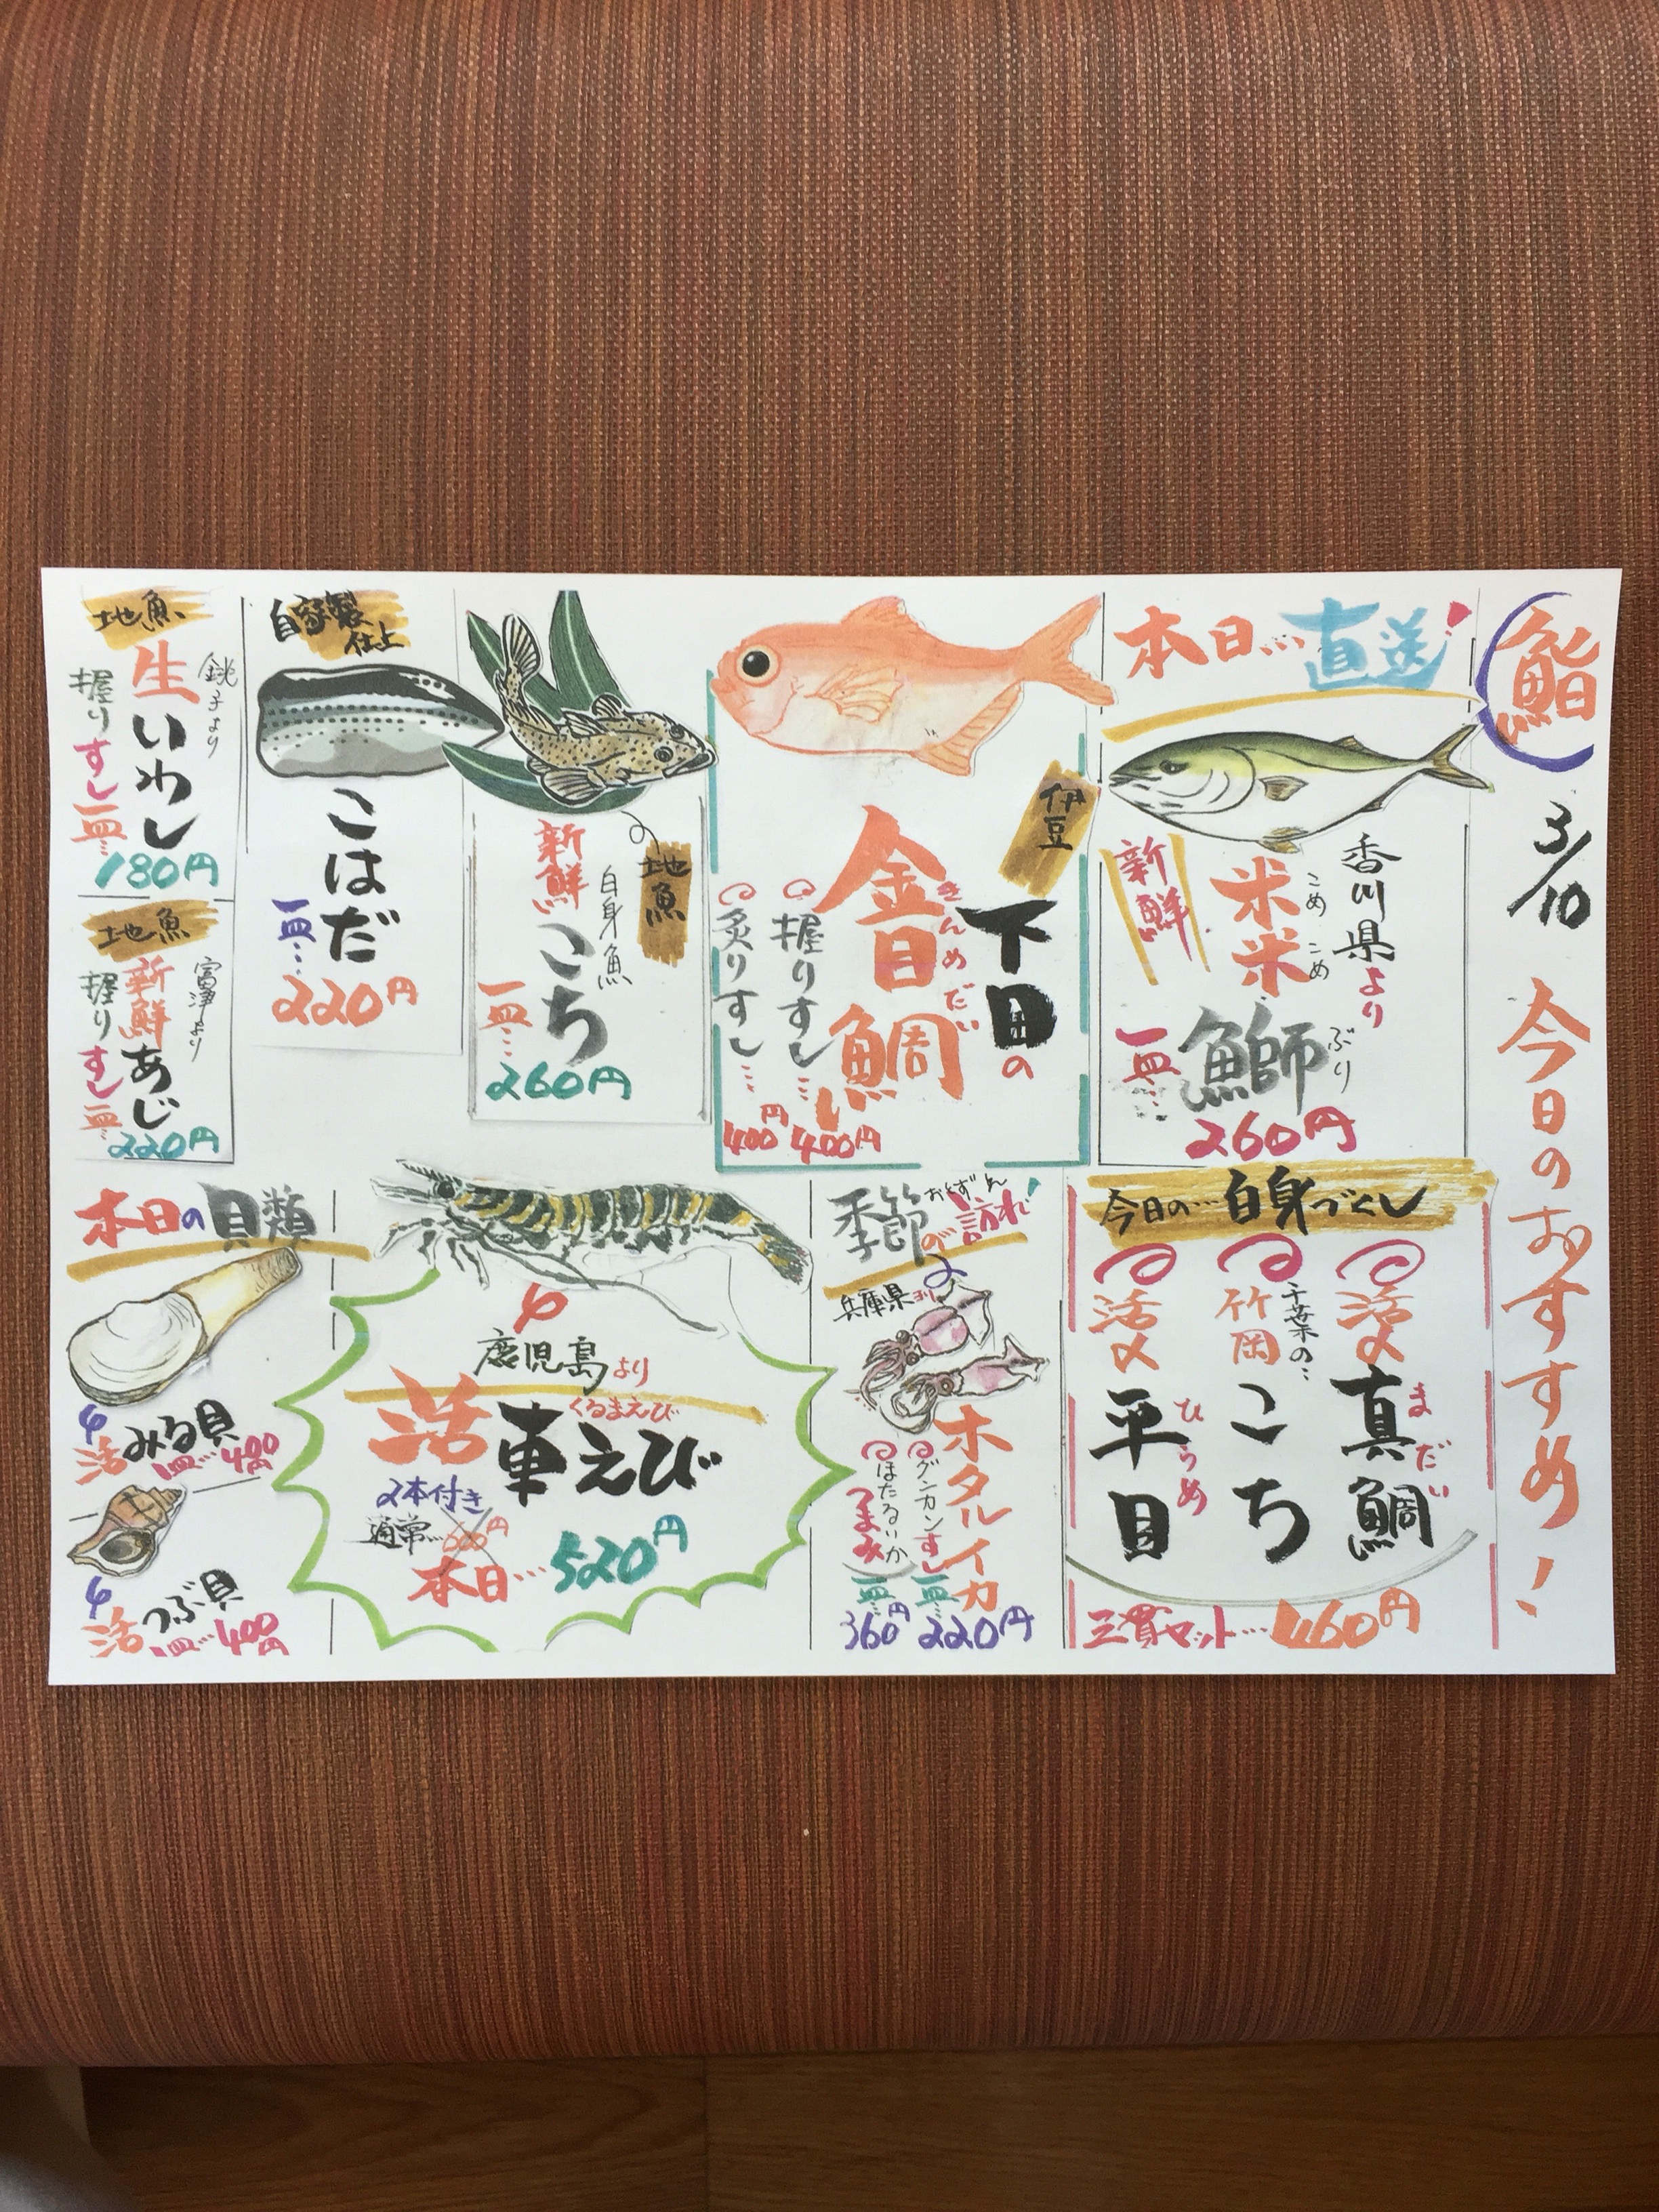 鮨
3/10
今日のおすすめ!
本日…直送!
香川県より
こめ こめ
米米
ぶり
鰤
新鮮
一皿…
260円
伊豆
下田の
きんめだい
金目鯛
握りすし…400円
炙りすし…400円
地魚
白身魚
新鮮
こち
一皿…
260円
自家製
仕上
こはだ
一皿…
220円
地魚
銚子より
生いわし
握りすし
一皿…
180円
地魚
新鮮
あじ
握りすし
一皿…
220円
今日の…白身づくし
活〆
まだい
真鯛
千葉の…
竹岡
こち
活〆
ひらめ
平目
三貫セット…460円
季節の訪れ!
おとずれ
兵庫県より
ホタルイカ
グンカンすし
一皿…
220円
ほたるいか
つまみ
一皿…
360円
鹿児島より
くるまえび
活車えび
2本付き
通常…600円
本日…520円
本日の貝類
活みる貝
一皿…400円
活つぶ貝
一皿…400円